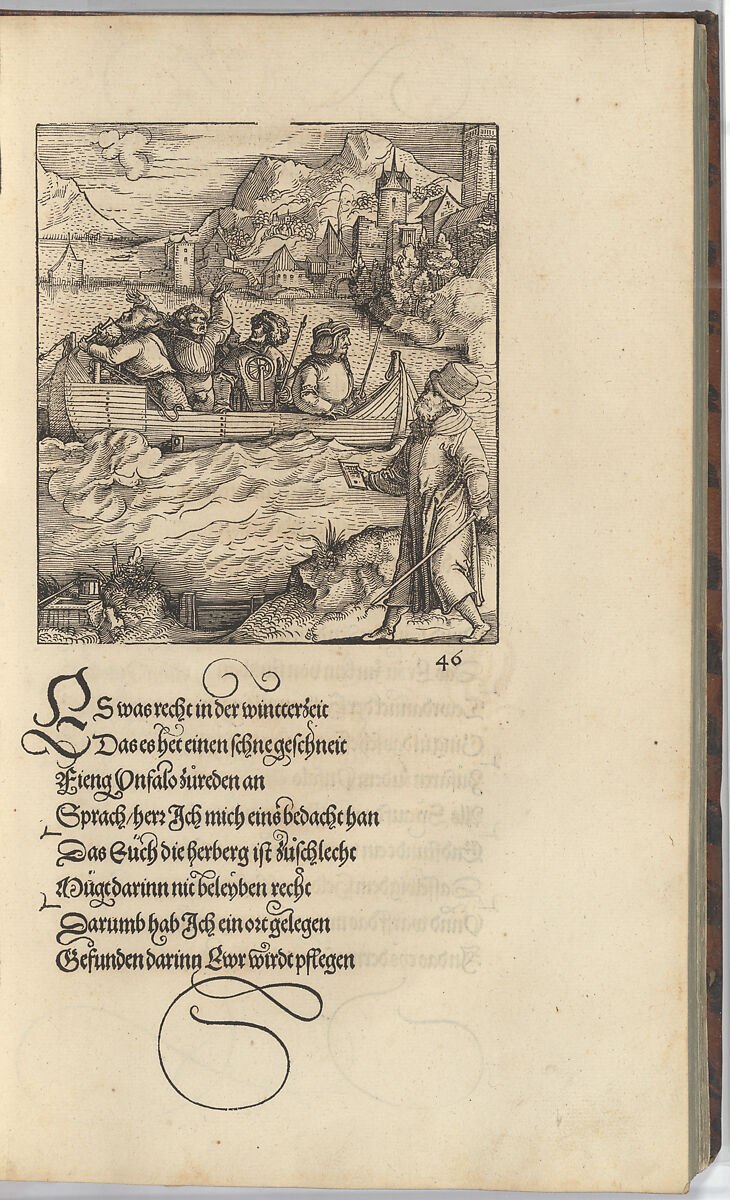 46
ES was recht in der wintterzeit
Das es het einen schne geschneit
Fieng Vnfalo zůreden an
Sprach/herr Ich mich eins bedacht han
Das Euch die herberg ist zuschlecht
Mügt darinn nit beleyben recht
Darumb hab Ich ein ort gelegen
Gefunden darinn Ewr wirdt pflegen